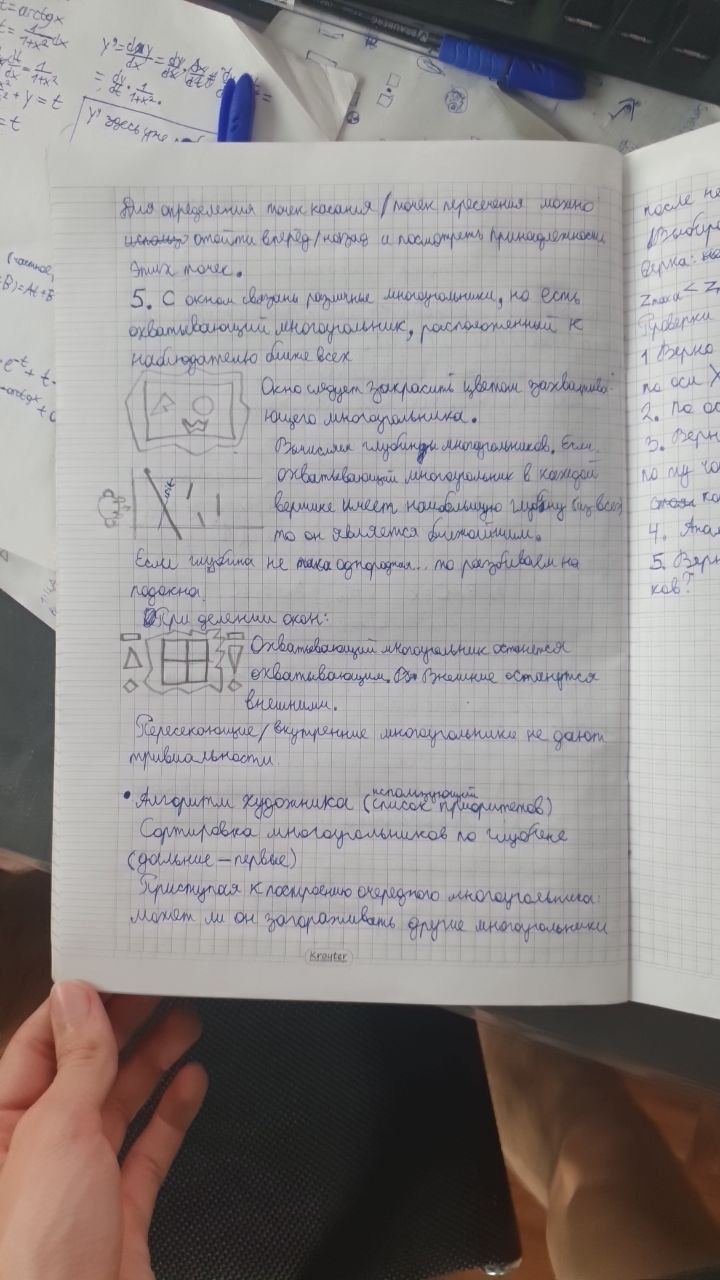 t = arctgx
y' = dy/dx = dy/dt · dt/dx =
= dy/dt · 1/1+x².
+ y = t
= t
y' здесь уже
Для определения точек касания/точек пересечения можно
отойти вперед/назад и посмотреть принадлежность
этих точек.
5. С окном связаны различные многоугольники, но есть
охватывающий многоугольник, расположенный к
наблюдателю ближе всех
Окно следует закрасить цветом захватыва-
ющего многоугольника.
Вычисляем глубины многоугольников. Если
охватывающий многоугольник в каждой
вершине имеет наибольшую глубину (из всех)
то он является ближайшим.
Если глубина не така однородная... то разбиваем на
подокна.
При делении окон:
Охватывающий многоугольник останется
охватывающим. Внешние останутся
внешними.
Пересекающие/внутренние многоугольники не дают
тривиальности.
• Алгоритм художника (использующий
список приоритетов)
Сортировка многоугольников по глубине
(дальние — первые)
Приступая к построению очередного многоугольника:
может ли он загораживать другие многоугольники
Kroyter
после не
Выбир
верка:
Проверки
1. Верно
по оси X
2. По ос
3. Верн
по ту
4. Анал
5. Верн
ков?